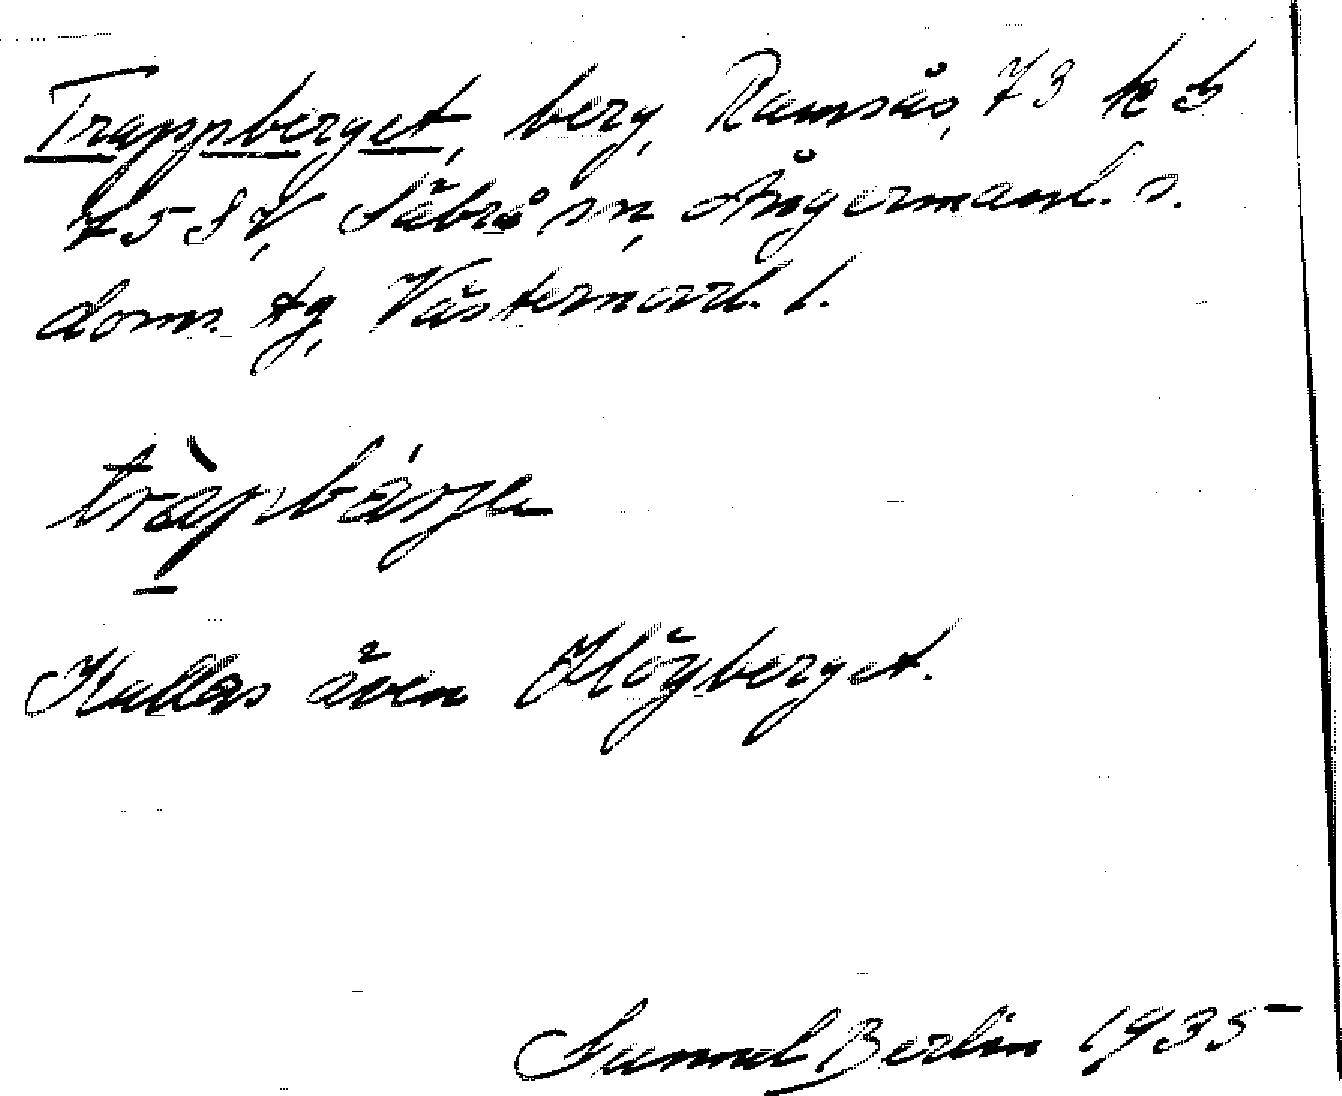 Trappberget, berg, Ramsås, 73 k b
758 V, Säbrå sn, Ångermanl. s.
doms. tg, Västernorrl. l.
tràpbárje
Kallas även Högberget.
Sunnel Berlin 1935